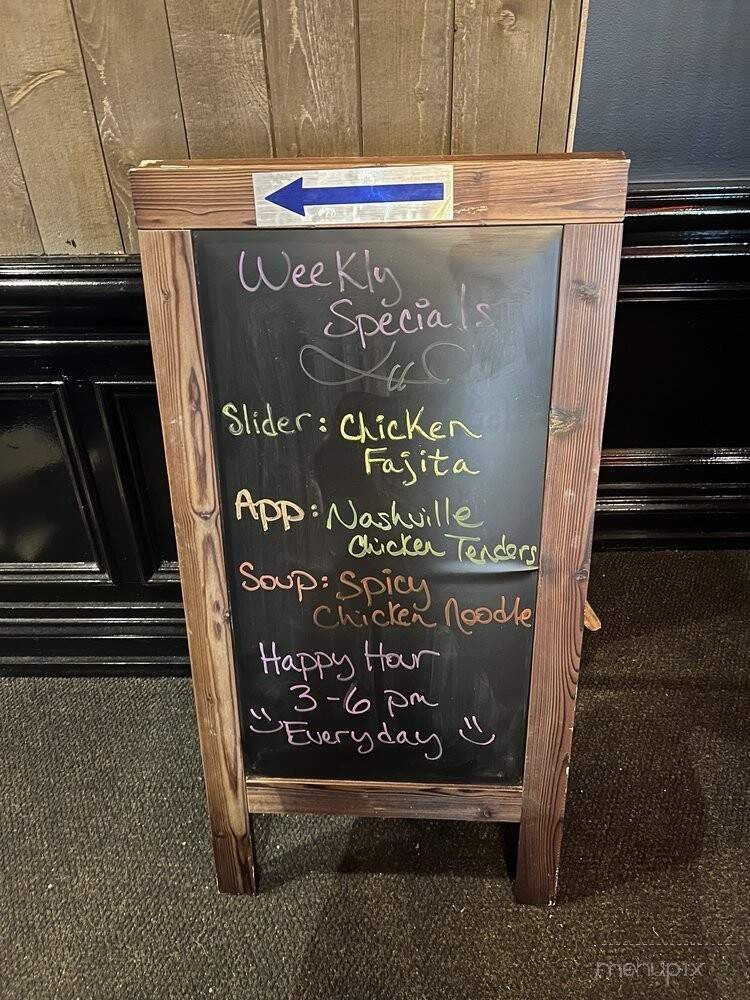 Weekly
Specials
Slider: Chicken
Fajita
App: Nashville
Chicken Tenders
Soup: Spicy
Chicken Noodle
Happy Hour
3-6 pm
Everyday
menupix